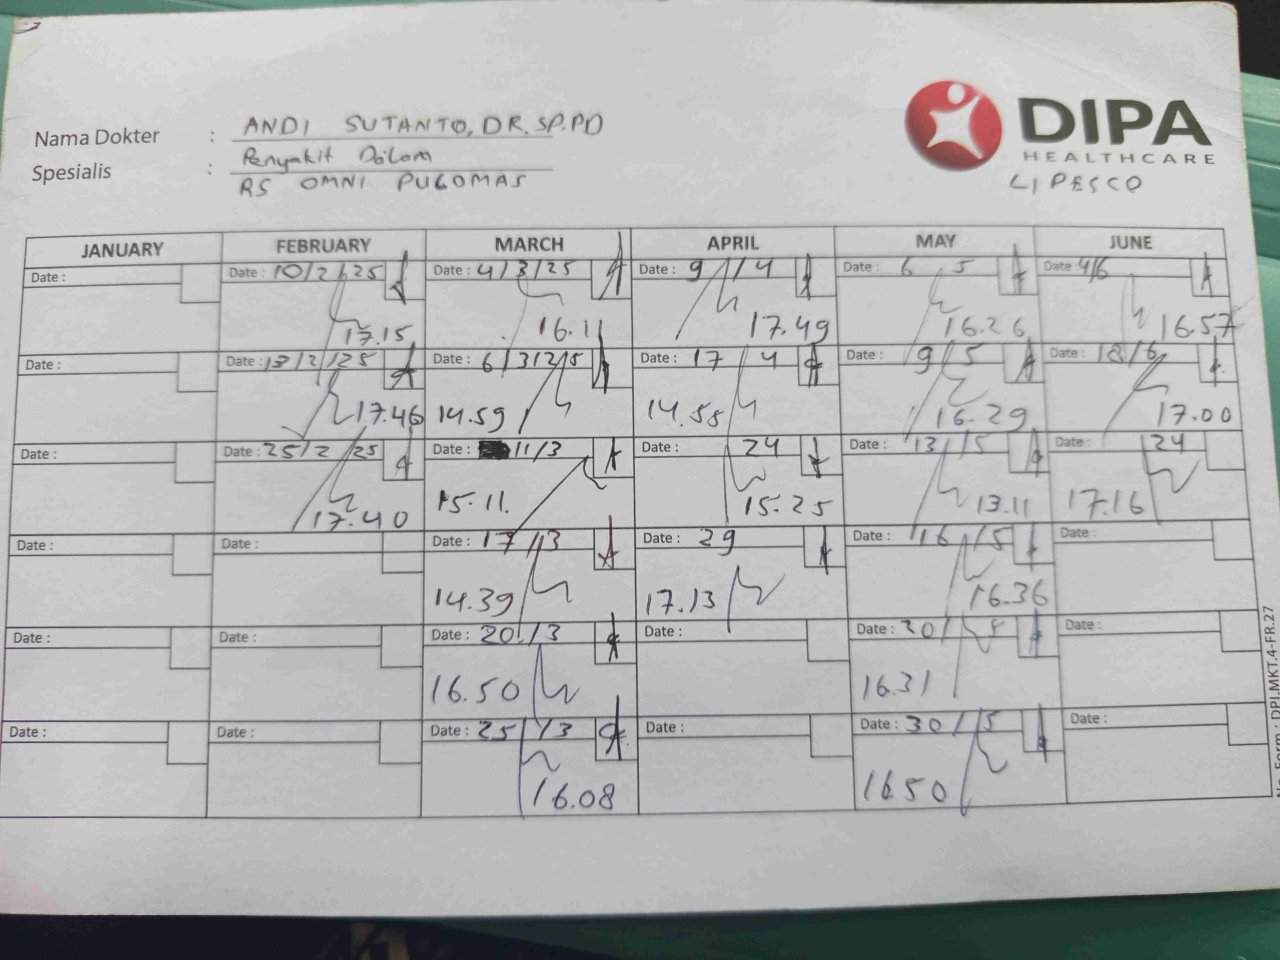 DIPA
HEALTHCARE
LIPESCO
Nama Dokter : ANDI SUTANTO, DR. SP.PD
Spesialis : Penyakit Dalam
RS OMNI PULOMAS
JANUARY FEBRUARY MARCH APRIL MAY JUNE
Date : Date : 10/2/25 Date : 4/3/25 Date : 9/4 Date : 6/5 Date 4/6
17.15 16.11 17.49 16.26 16.57
Date : Date : 13/2/25 Date : 6/3 25 Date : 17/4 Date : 9/5 Date : 18/6
17.46 14.59 14.58 16.29 17.00
Date : Date : 25/2/25 Date : 11/3 Date : 24 Date : 13/5 Date : 24
17.40 15.11. 15.25 13.11 17.16
Date : Date : Date : 17/3 Date : 29 Date : 16/5 Date :
14.39 17.13 16.36
Date : Date : Date : 20/3 Date : Date : Date :
16.50 16.31
Date : Date : Date : 25/3 Date : Date : 30/5 Date :
16.08 16.50
No. Form : DPI.MKT.4-FR.27